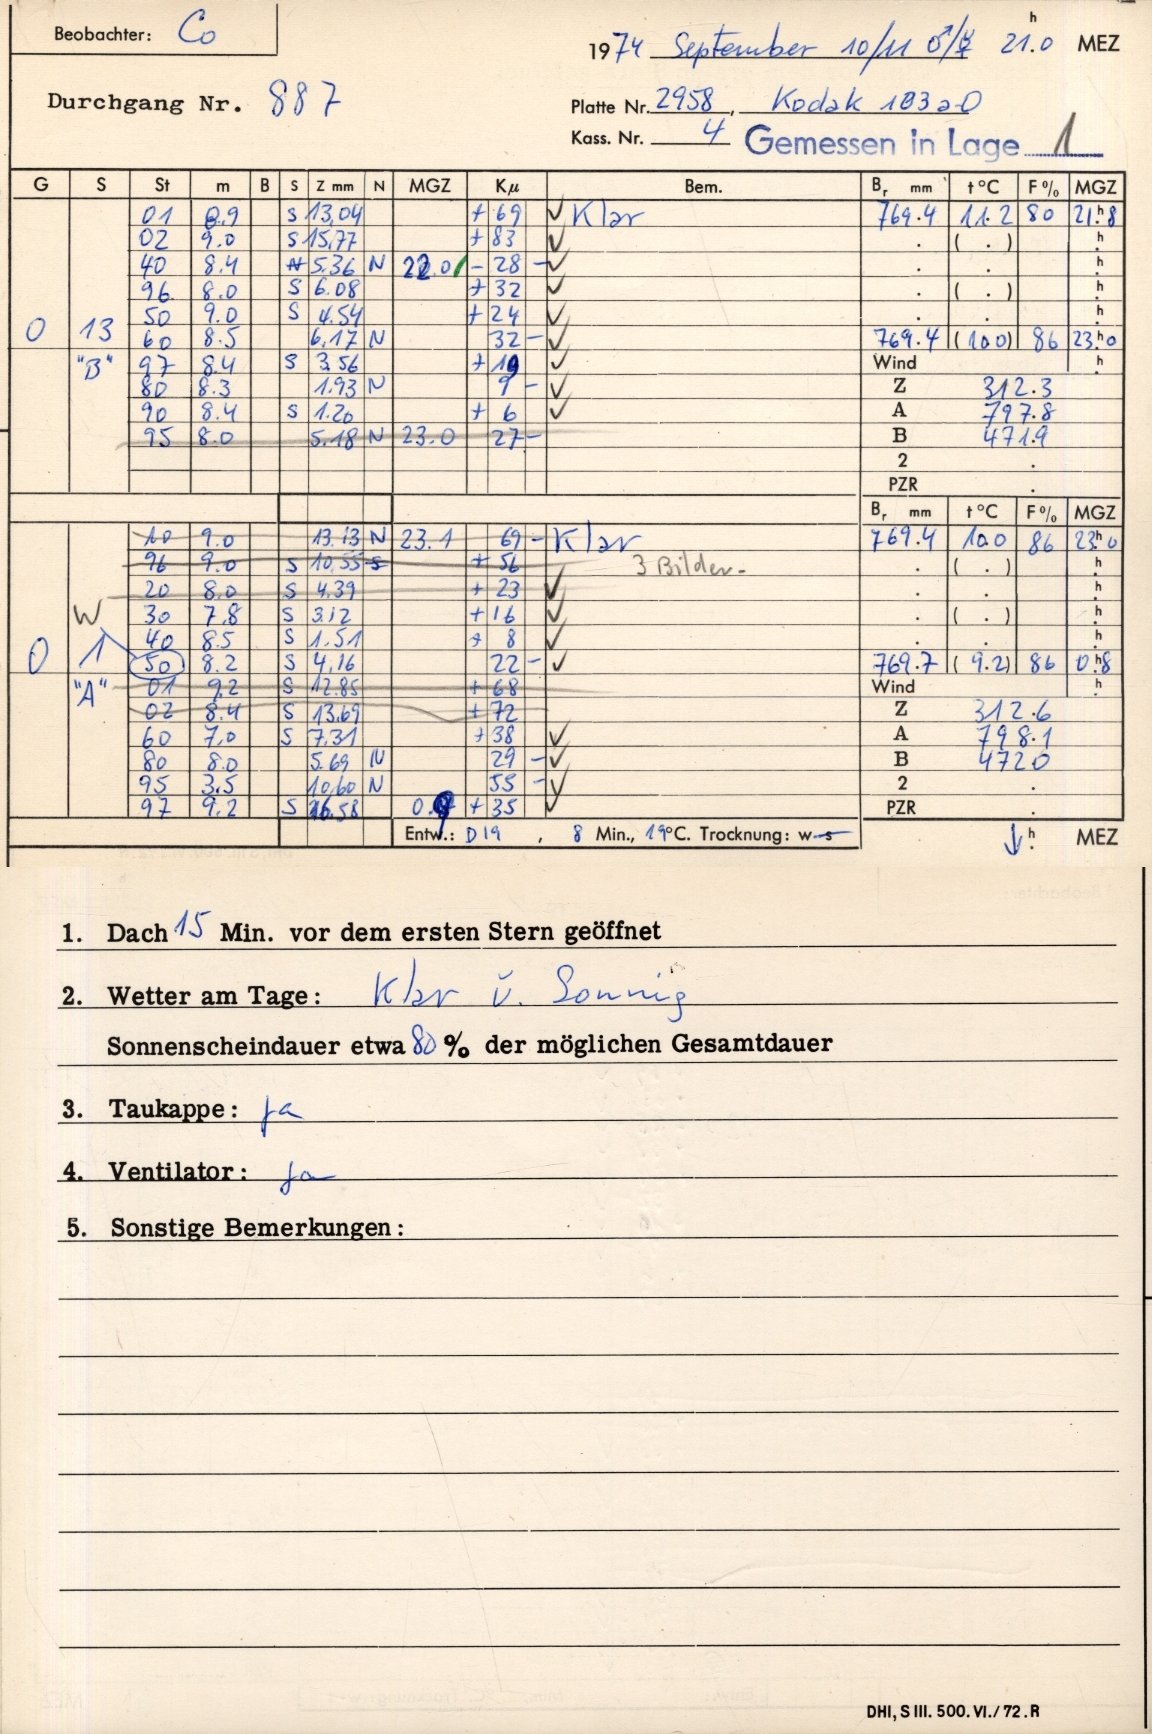 Beobachter: Co
1974 September 10/11 ♂/☿ 21.0 h MEZ
Durchgang Nr. 887
Platte Nr. 2958, Kodak 103a-O
Kass. Nr. 4 Gemessen in Lage 1
G S St m B S Z mm N MGZ Kμ Bem. Br mm t °C F % MGZ
01 8.9 S 13,04 + 69 ✓ Klar 769.4 11.2 80 21h8
02 9.0 S 15,77 + 83 ✓ . ( . ) h
40 8.4 5.36 N 22.0 - 28 - ✓ . . h
96 8.0 S 6.08 + 32 ✓ . ( . ) h
50 9.0 S 4.54 + 24 ✓ . . h
0 13 60 8.5 6,17 N 32 - ✓ 769.4 (10.0) 86 23h0
"B" 97 8.4 S 3.56 + 19 ✓ Wind h
80 8.3 1.93 N 9 - ✓ Z 312.3
90 8.4 S 1.20 + 6 ✓ A 797.8
95 8.0 5.18 N 23.0 27 - B 471.9
2 .
PZR .
Br mm t °C F % MGZ
10 9.0 13.13 N 23.1 69 - Klar 769.4 10.0 86 23h0
96 9.0 S 10,55 S + 56 3 Bilder - . ( . ) h
20 8.0 S 4.39 + 23 ✓ . . h
W 30 7,8 S 3.12 + 16 ✓ . ( . ) h
40 8.5 S 1.51 + 8 ✓ . . h
0 1 50 8.2 S 4,16 22 - ✓ 769.7 (9.2) 86 0h8
"A" 01 9.2 S 12.85 + 68 Wind h
02 8.4 S 13.69 + 72 Z 312.6
60 7,0 S 7.31 + 38 ✓ A 798.1
80 8.0 5.69 N 29 - ✓ B 472.0
95 3,5 10,60 N 55 - ✓ 2 .
97 9.2 S 16.58 0.9 + 35 ✓ PZR .
Entw.: D19, 8 Min., 19°C. Trocknung: w-s ↓ h MEZ
1. Dach 15 Min. vor dem ersten Stern geöffnet
2. Wetter am Tage: Klar u. Sonnig
Sonnenscheindauer etwa 80 % der möglichen Gesamtdauer
3. Taukappe: ja
4. Ventilator: ja
5. Sonstige Bemerkungen:
DHI, S III. 500. VI./72. R